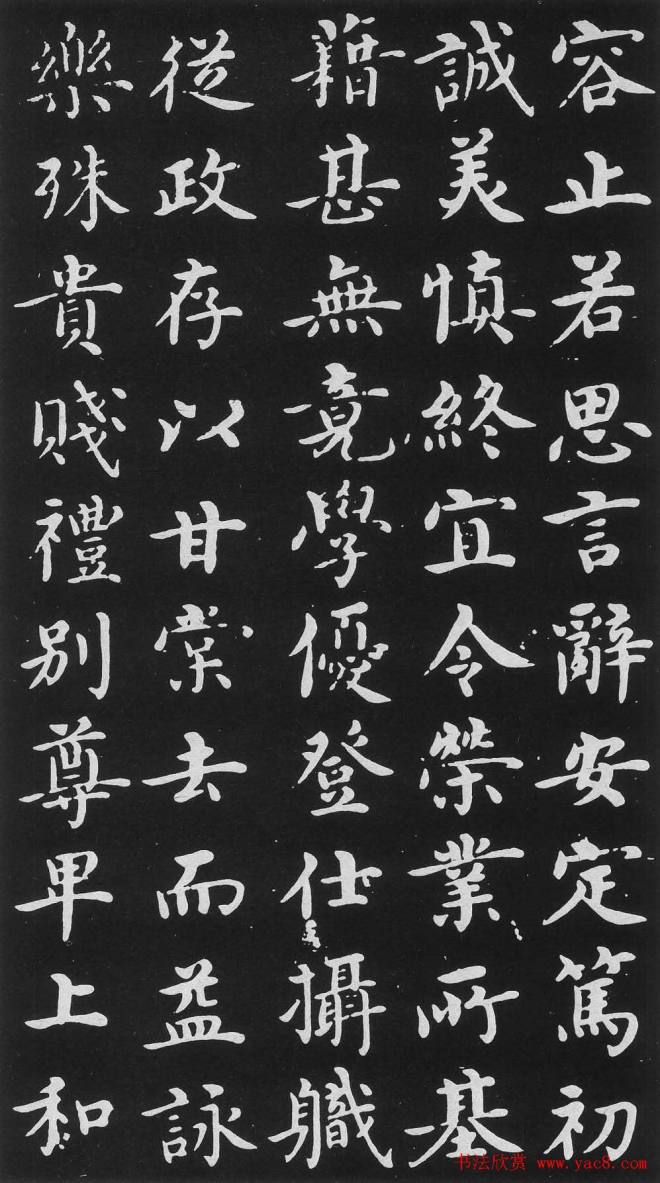 容止若思言辭安定篤初
誠美慎終宜令榮業所基
藉甚無竟學優登仕攝職
從政存以甘棠去而益詠
樂殊貴賤禮別尊卑上和
书法欣赏 www.yac8.com